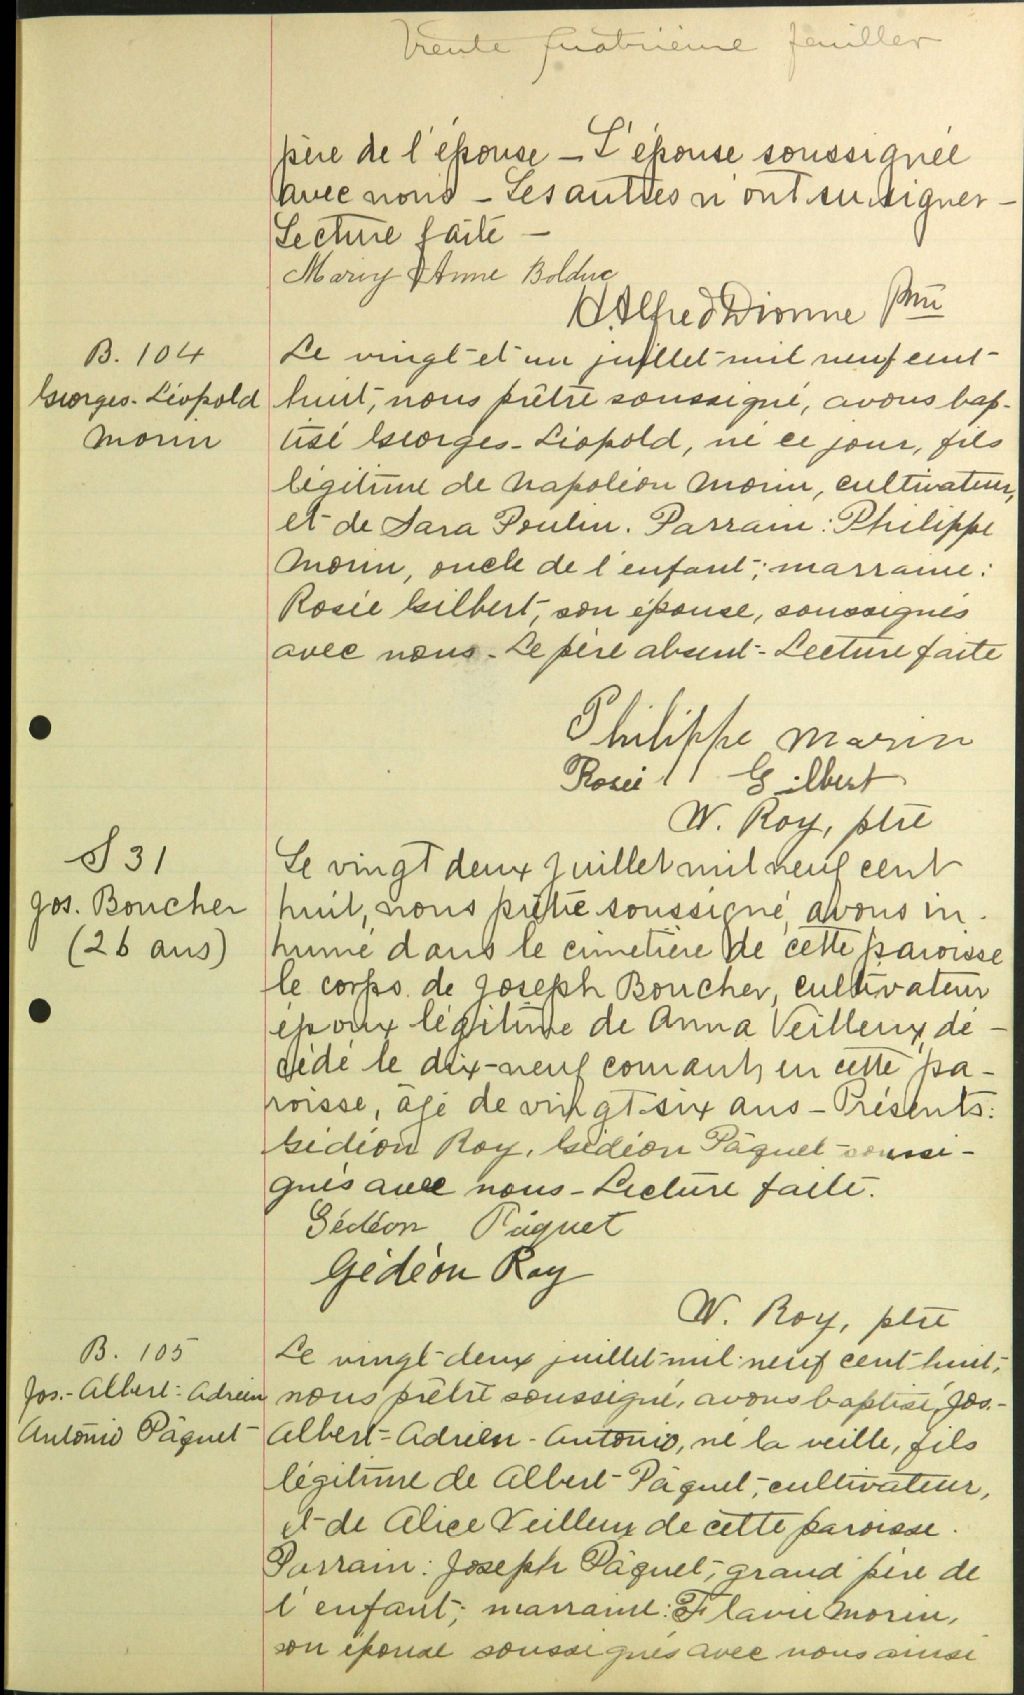 Trente quatrième feuillet
père de l'épouse _ L'épouse soussignée
avec nous _ Les autres n'ont su signer _
Lecture faite _
Mary Anne Bolduc
H. Alfred Dionne Ptre
B. 104
Georges-Léopold
Morin
Le vingt-et-un juillet mil neuf cent
huit, nous prêtre soussigné, avons bap-
tisé Georges-Léopold, né ce jour, fils
légitime de Napoléon Morin, cultivateur,
et de Sara Poulin. Parrain: Philippe
Morin, oncle de l'enfant; marraine:
Rosée Gilbert, son épouse, soussignés
avec nous - Le père absent - Lecture faite
Philippe Morin
Rosée Gilbert
W. Roy, ptre
S 31
Jos. Boucher
(26 ans)
Le vingt deux juillet mil neuf cent
huit, nous prêtre soussigné, avons in-
humé dans le cimetière de cette paroisse
le corps de Joseph Boucher, cultivateur
époux légitime de Anna Veilleux, dé-
cédé le dix-neuf courant, en cette pa-
roisse, âgé de vingt-six ans - Présents:
Gédéon Roy, Gédéon Pâquet soussi-
gnés avec nous - Lecture faite.
Gédéon Pâquet
Gédéon Roy
W. Roy, ptre
B. 105
Jos.-Albert-Adrien
Antonio Pâquet
Le vingt-deux juillet mil neuf cent huit,
nous prêtre soussigné, avons baptisé, Jos.-
Albert-Adrien-Antonio, né la veille, fils
légitime de Albert Pâquet, cultivateur,
et de Alice Veilleux de cette paroisse.
Parrain: Joseph Pâquet, grand père de
l'enfant; marraine: Flavie Morin,
son épouse soussignés avec nous ainsi